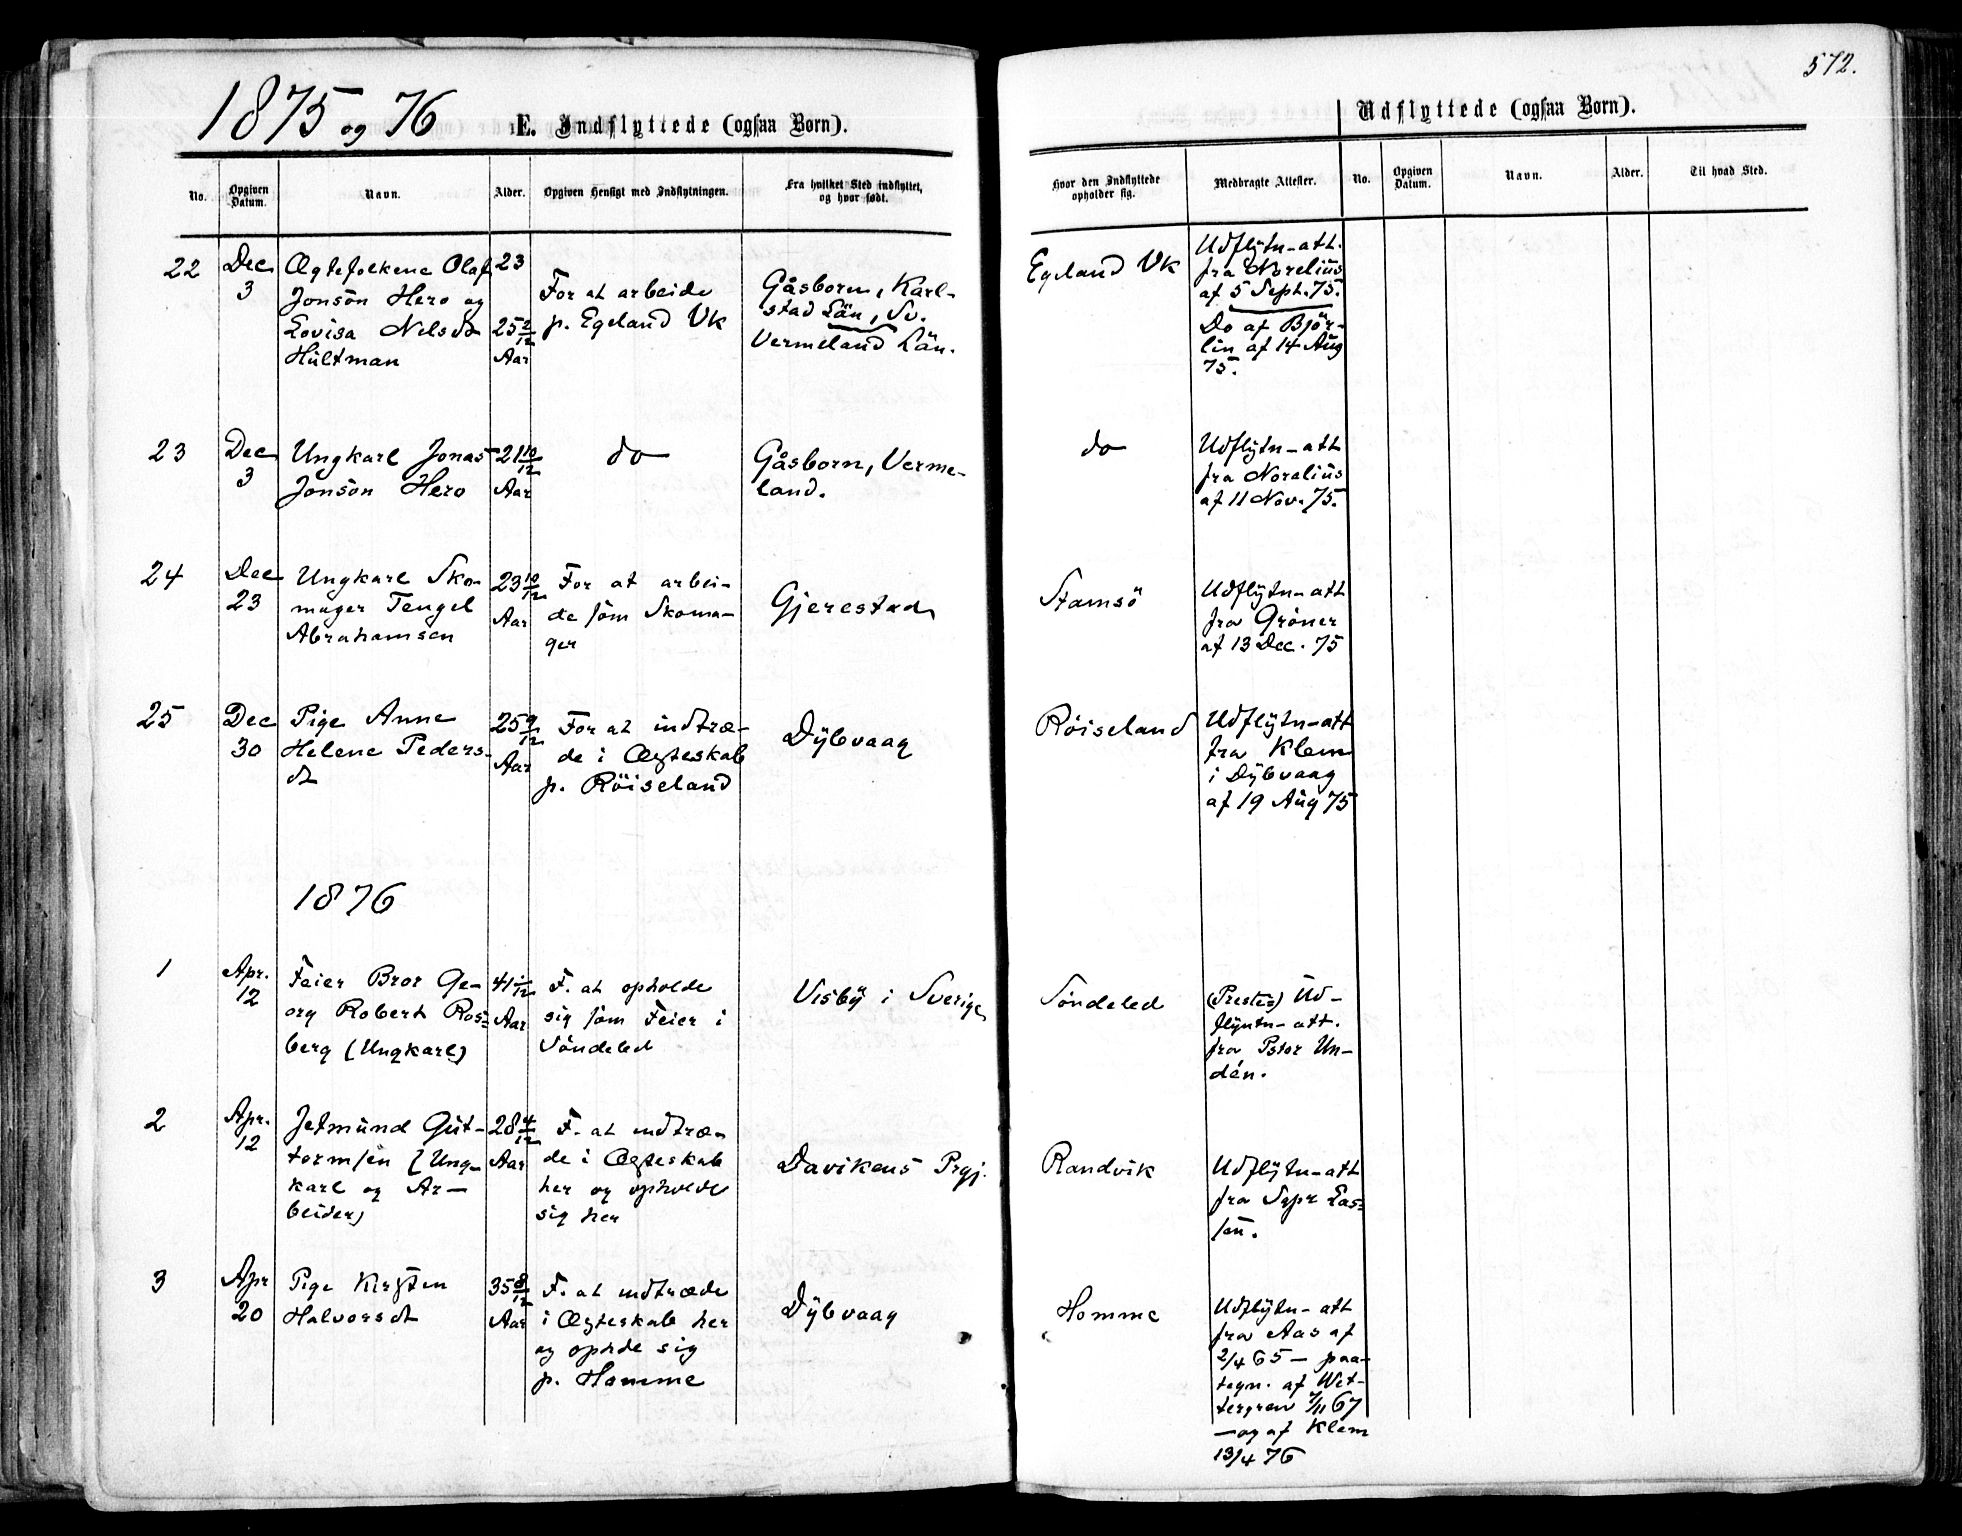 572.
1875 og 76
E. Indflyttede (ogsaa Børn).
Udflyttede (ogsaa Børn).
No.
Opgiven Datum.
Navn.
Alder.
Opgiven Hensigt med Indflytningen.
Fra hvilket Sted indflyttet, og hvor født.
Hvor den Indflyttede opholder sig.
Medbragte Attester.
No.
Opgiven Datum.
Navn.
Alder.
Til hvad Sted.
22
Dec
3
Ægtefolkene Olaf
Jonsön Hero og
Lovisa Nelsd
Hultman
23
25 2/12
Aar
For at arbeide
p. Egeland Vk
Gåsborn, Karl-
stad Län, Sv.
Vermeland Län.
Egeland Vk
Udflytn-att.
fra Norelius
af 5 Sept. 75.
Do af Björ-
lin af 14 Aug
75.
23
Dec
3
Ungkarl Jonas
Jonsön Hero
21 10/12
Aar
do
Gåsborn, Verme-
land.
do
Udflytn-att
fra Noralius
af 11 Nov. 75.
24
Dec
23
Ungkarl Sko-
mager Tengel
Abrahamsen
23 10/12
Aar
For at arbei-
de som Skoma-
ger
Gjerestad
Stamsö
Udflytn-att
fra Gröner
af 13 Dec. 75
25
Dec
30
Pige Anne
Helene Peders-
dt
25 9/12
Aar
For at indtræ-
de i Ægteskab
p. Röiseland
Dybvaag
Röiseland
Udflytn-att
fra Klem
i Dybvaag
af 19 Aug 75
1876
1
Apr.
12
Feier Bror Ge-
org Robert Ros=
berg (Ungkarl)
41 1/12
Aar
F. at opholde
sig som Feier i
Söndeled
Visby i Sverige
Söndeled
(Prestes) Ud-
flyntn-att.
fra Pstor Un-
dén.
2
Apr.
12
Jetmund Gut-
tormsen (Ung-
karl og Ar-
beider)
28 4/12
Aar
F. at indtræ-
de i Ægteskab
her og opholde
sig her
Davikens Prgj.
Randvik
Udflytn-att
fra Sgpr Las=
sen.
3
Apr
20
Pige Kirsten
Halvorsdt
35 8/12
Aar
F. at indtræde
i Ægteskab her
og ophde sig
p. Homme
Dybvaag
Homme
Udflytn-att
fra Aas af
2/4 65 - paa-
tegn. af Wet-
tergren 7/11 67
- og af Klem
13/4 76